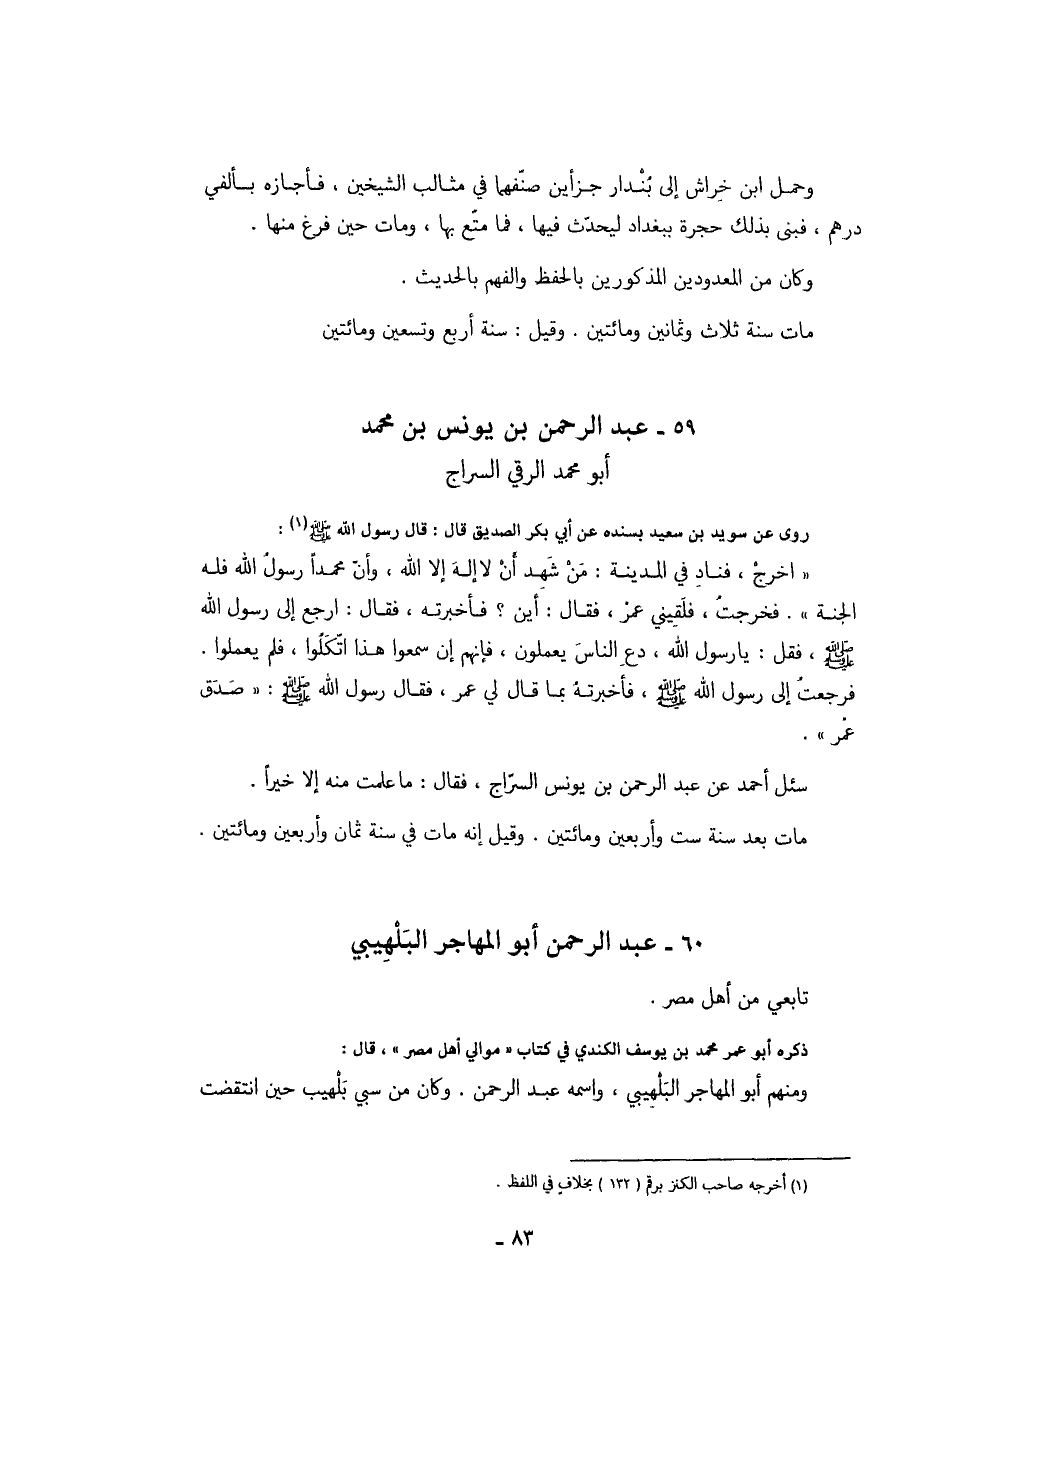 وحمل ابن خِراش إلى بُنْدار جزأين صنّفها في مثالب الشيخين ، فأجازه بألفي
درهم ، فبنى بذلك حجرة ببغداد ليحدّث فيها ، فما متّع بها ، ومات حين فرغ منها .
وكان من المعدودين المذكورين بالحفظ والفهم بالحديث .
مات سنة ثلاث وثمانين ومائتين . وقيل : سنة أربع وتسعين ومائتين
٥٩ ـ عبد الرحمن بن يونس بن محمد
أبو محمد الرقي السراج
روى عن سويد بن سعيد بسنده عن أبي بكر الصديق قال : قال رسول الله ﷺ(١) :
« اخرجْ ، فنادِ في المدينة : مَنْ شَهِد أَنْ لاإلهَ إلا الله ، وأنّ محمداً رسولُ الله فله
الجنة » . فخرجتُ ، فلَقِيني عمرُ ، فقال : أين ؟ فأخبرته ، فقال : ارجع إلى رسول الله
ﷺ ، فقل : يارسول الله ، دعِ الناسَ يعملون ، فإنهم إن سمعوا هذا اتّكَلُوا ، فلم يعملوا .
فرجعتُ إلى رسول الله ﷺ ، فأخبرتهُ بما قال لي عمر ، فقال رسول الله ﷺ : « صَدَق
عُمر » .
سئل أحمد عن عبد الرحمن بن يونس السرّاج ، فقال : ماعلمت منه إلا خيراً .
مات بعد سنة ست وأربعين ومائتين . وقيل إنه مات في سنة ثمان وأربعين ومائتين .
٦٠ ـ عبد الرحمن أبو المهاجر البَلْهِيبي
تابعي من أهل مصر .
ذكره أبو عمر محمد بن يوسف الكندي في كتاب « موالي أهل مصر » ، قال :
ومنهم أبو المهاجر البَلْهِيبي ، واسمه عبد الرحمن . وكان من سبي بَلْهيب حين انتقضت
(١) أخرجه صاحب الكنز برقم ( ١٣٢ ) بخلافٍ في اللفظ .
٨٣ ـ